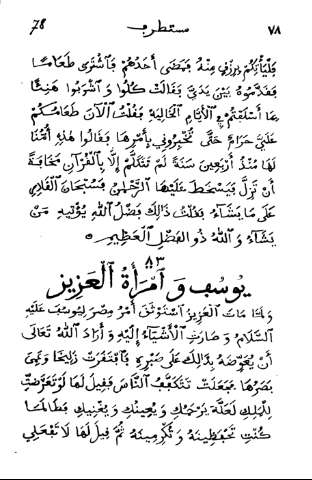 78 مستطرف ٧٨
فَلْيَأْتِكُمْ بِرِزْقٍ مِنْهُ فَمَضَى أَحَدُهُمْ فَاشْتَرَى طَعَامًا
فَقَدَّمُوهُ بَيْنَ يَدَيَّ فَقَالَتْ كُلُوا وَاشْرَبُوا هَنِيئًا
بِمَا أَسْلَفْتُمْ فِي الْأَيَّامِ الْخَالِيَةِ فَقُلْتُ الْآنَ طَعَامُكُمْ
عَلَيَّ حَرَامٌ حَتَّى تُخْبِرُونِي بِأَمْرِهَا فَقَالُوا هٰذِهِ أُمُّنَا
لَهَا مُنْذُ أَرْبَعِينَ سَنَةً لَمْ تَتَكَلَّمْ إِلَّا بِالْقُرْآنِ مَخَافَةَ
أَنْ تَزِلَّ فَيَسْخَطَ عَلَيْهَا الرَّحْمٰنُ فَسُبْحَانَ الْقَادِرِ
عَلَى مَا يَشَاءُ فَقُلْتُ ذَالِكَ فَضْلُ اللّٰهِ يُؤْتِيهِ مَنْ
يَشَاءُ وَاللّٰهُ ذُو الْفَضْلِ الْعَظِيمِ ٥
٨٣
يُوسُف وَ امْرَأَةُ الْعَزِيز
وَلَمَّا مَاتَ الْعَزِيزُ اسْتَوْثَقَ أَمْرُ مِصْرَ لِيُوسُفَ عَلَيْهِ
السَّلَامُ وَصَارَتِ الْأَشْيَاءُ إِلَيْهِ وَأَرَادَ اللّٰهُ تَعَالَى
أَنْ يُعَوِّضَهُ بِذَالِكَ عَلَى صَبْرِهِ فَافْتَقَرَتْ زَلِيخَا وَعَمِيَ
بَصَرُهَا فَجَعَلَتْ تَتَكَفَّفُ النَّاسَ فَقِيلَ لَهَا لَوْ تَعَرَّضْتِ
لِلْمَلِكِ لَعَلَّهُ يَرْحَمُكِ وَيُعِينُكِ وَيُغْنِيكِ فَطَالَمَا
كُنْتِ تَحْفَظِينَهُ وَتُكْرِمِينَهُ ثُمَّ قِيلَ لَهَا لَا تَفْعَلِي